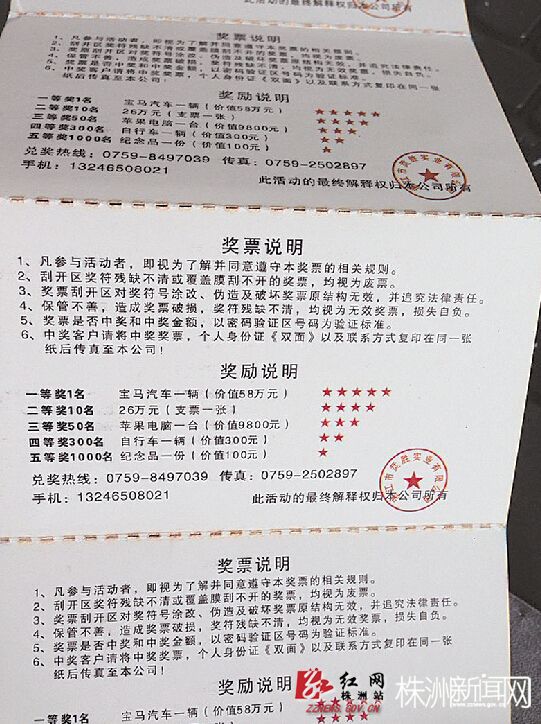 此活动的最终解释权归本公司所有
奖票说明
1、凡参与活动者，即视为了解并同意遵守本奖票的相关规则。
2、刮开区奖符残缺不清或覆盖膜刮不开的奖票，均视为废票。
3、奖票刮开区对奖符号涂改、伪造及破坏奖票原结构无效，并追究法律责任。
4、保管不善，造成奖票破损，奖符残缺不清，均视为无效奖票，损失自负。
5、奖票是否中奖和中奖金额，以密码验证区号码为验证标准。
6、中奖客户请将中奖奖票，个人身份证《双面》以及联系方式复印在同一张
纸后传真至本公司！
奖励说明
一等奖1名 宝马汽车一辆（价值58万元） ★★★★★
二等奖10名 26万元（支票一张） ★★★★
三等奖50名 苹果电脑一台（价值9800元） ★★★
四等奖300名 自行车一辆（价值300元） ★★
五等奖1000名 纪念品一份（价值100元） ★
兑奖热线：0759-8497039 传真：0759-2502897
手机：13246508021
此活动的最终解释权归本公司所有
奖票说明
1、凡参与活动者，即视为了解并同意遵守本奖票的相关规则。
2、刮开区奖符残缺不清或覆盖膜刮不开的奖票，均视为废票。
3、奖票刮开区对奖符号涂改、伪造及破坏奖票原结构无效，并追究法律责任。
4、保管不善，造成奖票破损，奖符残缺不清，均视为无效奖票，损失自负。
5、奖票是否中奖和中奖金额，以密码验证区号码为验证标准。
6、中奖客户请将中奖奖票，个人身份证《双面》以及联系方式复印在同一张
纸后传真至本公司！
奖励说明
一等奖1名 宝马汽车一辆（价值58万元） ★★★★★
二等奖10名 26万元（支票一张） ★★★★
三等奖50名 苹果电脑一台（价值9800元） ★★★
四等奖300名 自行车一辆（价值300元） ★★
五等奖1000名 纪念品一份（价值100元） ★
兑奖热线：0759-8497039 传真：0759-2502897
手机：13246508021
此活动的最终解释权归本公司所有
奖票说明
1、凡参与活动者，即视为了解并同意遵守本奖票的相关规则。
2、刮开区奖符残缺不清或覆盖膜刮不开的奖票，均视为废票。
3、奖票刮开区对奖符号涂改、伪造及破坏奖票原结构无效，并追究法律责任。
4、保管不善，造成奖票破损，奖符残缺不清，均视为无效奖票，损失自负。
5、奖票是否中奖和中奖金额，以密码验证区号码为验证标准。
6、中奖客户请将中奖奖票，个人身份证《双面》以及联系方式复印在同一张
纸后传真至本公司！
奖励说明
一等奖1名 宝马汽车一辆（价值58万元）
红网
株洲站
ZZNEWS.GOV.CN
株洲新闻网
www.zznews.gov.cn